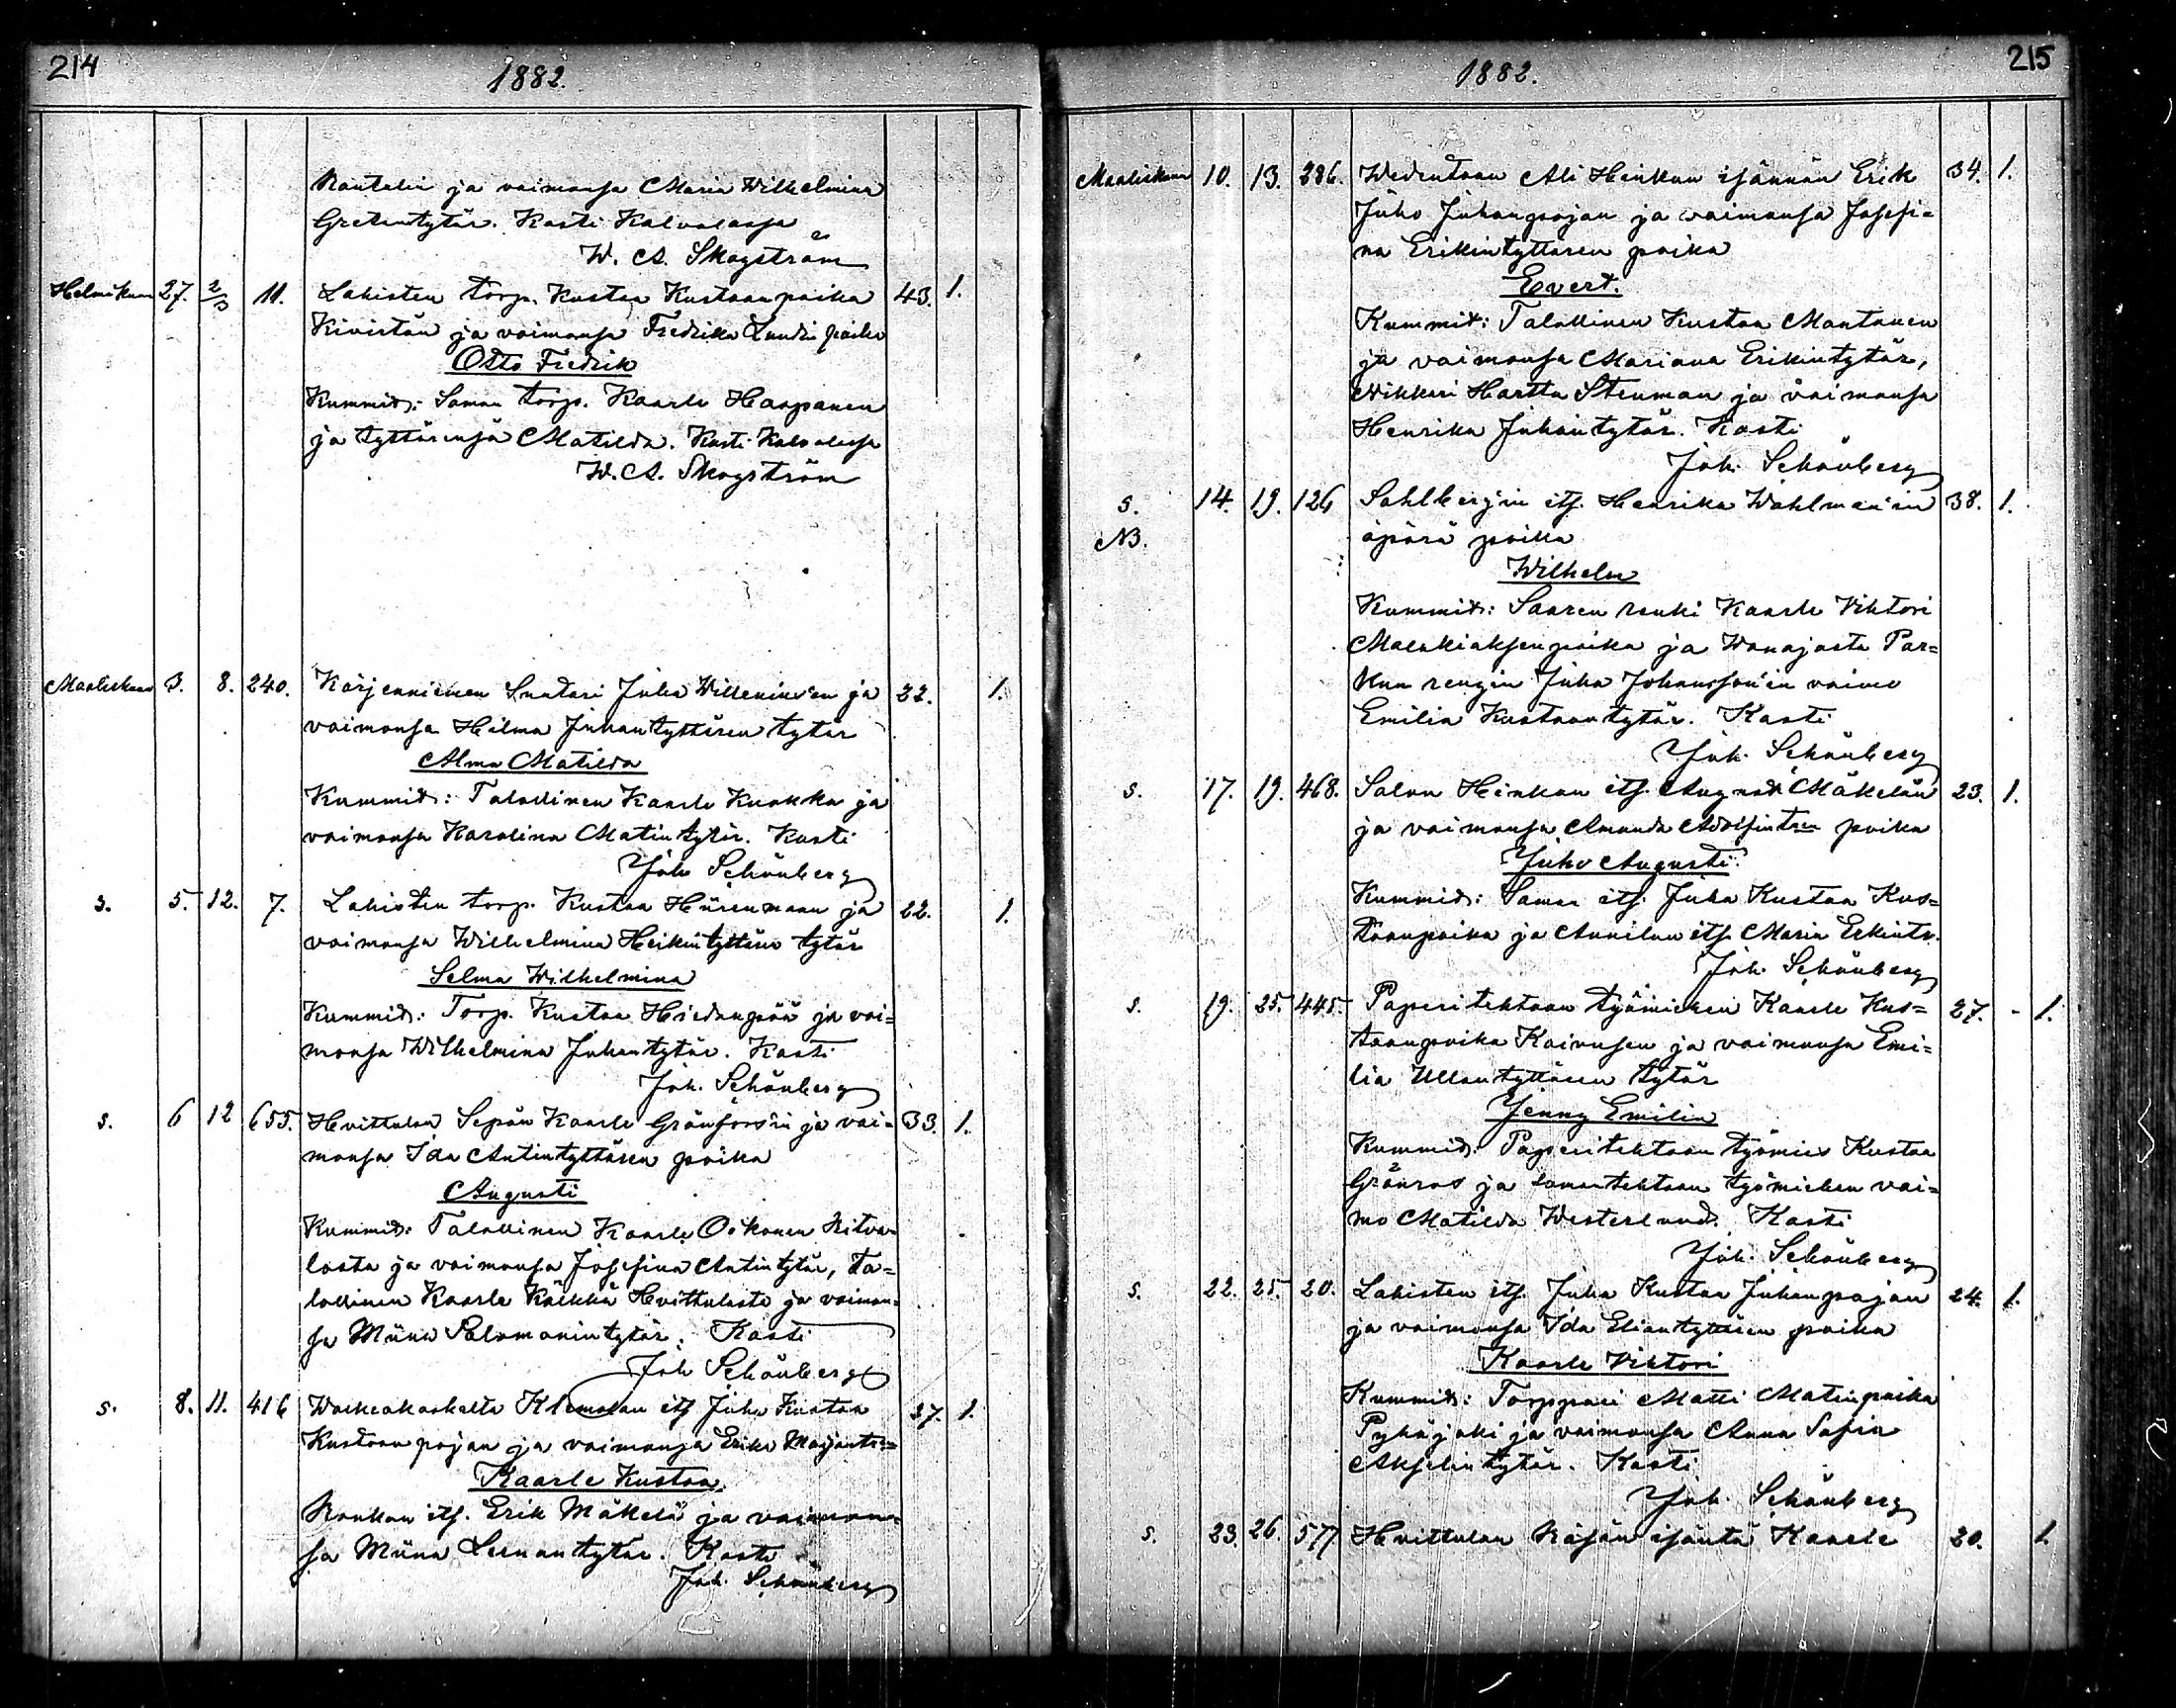 214
1882.
Rautelin ja vaimonsa Maria Wilhelmina
Gretentytär. Kasti Kalvolassa
W. A. Skogström
Helmikuu 27. 2/3 11. Lahisten torp. Kustaa Kustaanpoika 43. 1.
Kivistön ja vaimonsa Fredrika Lundin poika
Otto Fredrik
Kummit: Saman torp. Kaarle Haapanen
ja tyttärensä Matilda. Kasti Kalvolassa
W. A. Skogström
Maaliskuu 3. 8. 240. Karjenniemen Suutari Juha Willenius'en ja 22. 1.
vaimonsa Hilma Juhantyttären tytär
Alma Matilda
Kummit: Talollinen Kaarle Kuokka ja
vaimonsa Karolina Matintytär. Kasti
Joh Schönberg
s. 5. 12. 7. Lahisten torp. Kustaa Hiirenmaan ja 22. 1.
vaimonsa Wilhelmina Heikintyttären tytär
Selma Wilhelmina
Kummit: Torp. Kustaa Hiedanpää ja vai=
monsa Wilhelmina Juhantytär. Kasti
Joh. Schönberg
s. 6 12 655. Hvittulan Sepän Kaarle Grönfors'in ja vai= 33. 1.
monsa Ida Antintyttären poika
Augusti
Kummit: Talollinen Kaarle Oikonen Ritva=
losta ja vaimonsa Josefina Antintytär, ta=
lollinen Kaarle Kölkkä Hvittulasta ja vaimon=
sa Miina Salomonintytär. Kasti
Joh Schönberg
s. 8. 11. 416 Waikeakoskelta Klemolan its Juha Kustaa 27. 1.
Kustaanpojan ja vaimonsa Erika
Kaarle Kustaa.
Konkan its. Erik Mäkelä ja vaimon=
sa Miina Leenantytär. Kasti
Joh. Schönberg
215
1882.
Maaliskuu 10. 13. 286. Wedentaan Ali Heikun isännän Erik 34. 1.
Juho Juhanpojan ja vaimonsa Josefi=
na Erikintyttären poika
Evert.
Kummit: Talollinen Kustaa Mantanen
ja vaimonsa Mariana Erikintytär,
Nikkari Hartta Stenman ja vaimonsa
Henrika Juhantytär. Kasti
Joh. Schönberg
s. 14. 19. 126 Sahlberg'in its. Henrika Wahlman'in 38. 1.
NB. äpärä poika
Wilhelm
Kummit: Saaren renki Kaarle Viktori
Malakiaksenpoika ja Wanajasta Par=
kun rengin Juha Johansson'in vaimo
Emilia Kustaantytär. Kasti
Joh. Schönberg
s. 17. 19. 468. Salon Heikun its. August Mäkelän 23. 1.
ja vaimonsa Amanda Adolfintren poika
Juho Augusti.
Kummit: Saman its. Juha Kustaa Kus=
taanpoika ja Annilan its. Maria Erkintr.
Joh. Schönberg
s. 19. 25. 445. Paperitehtaan työmiehen Kaarle Kus= 27. - 1.
taanpoika Koivusen ja vaimonsa Emi=
lia Ullantyttären tytär
Jenny Emilia
Kummit: Paperitehtaan työmies Kustaa
Grönros ja samantehtaan työmiehen vai=
mo Matilda Westerlund. Kasti
Joh. Schönberg
s. 22. 25. 20. Lahisten its. Juha Kustaa Juhanpojan 24. 1.
ja vaimonsa Ida Eliantyttären poika
Kaarle Viktori
Kummit: Torppari Matti Matinpoika
Pyhäjoki ja vaimonsa Anna Sofia
Akselintytär. Kasti
Joh. Schönberg
s. 23. 26. 577 Hvittulan Käsän isäntä Kaarle 20. 1.